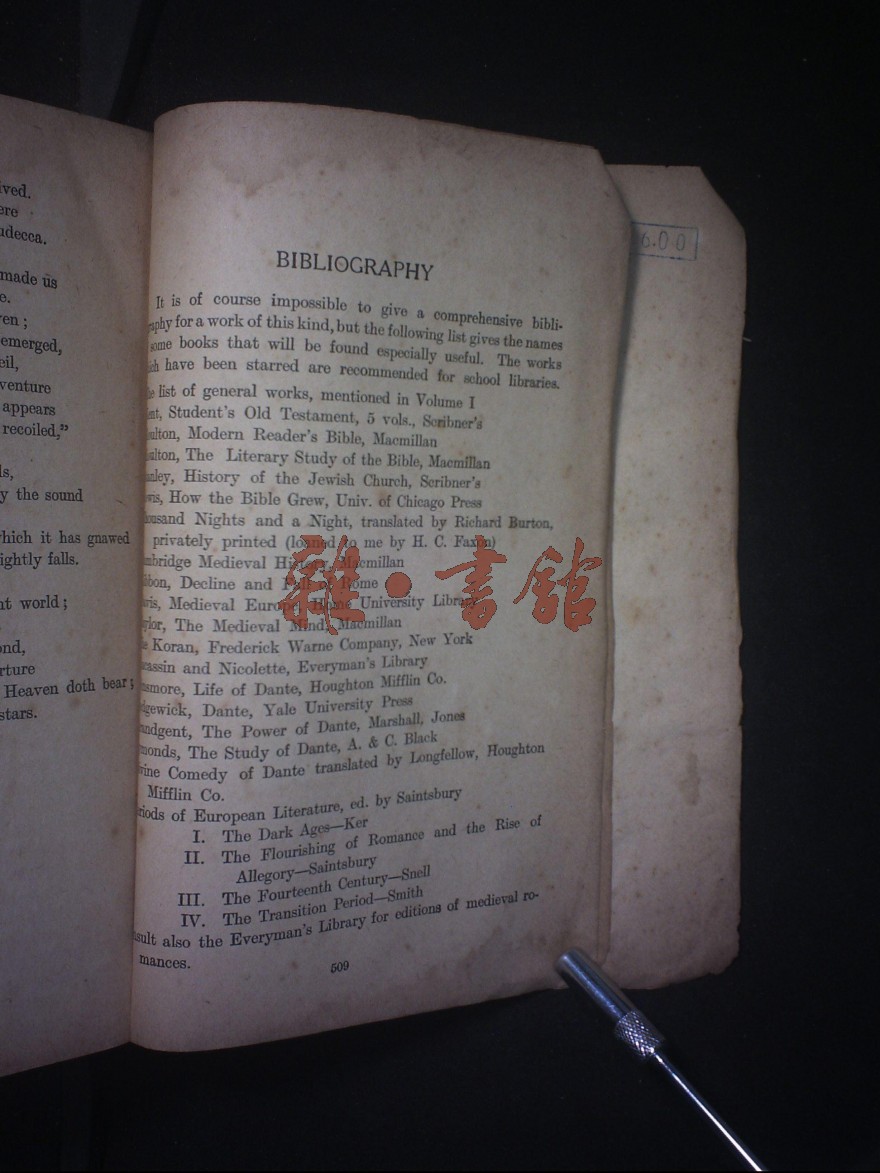 ived.
ere
udecca.
made us
e.
ven ;
emerged,
eil,
venture
appears
recoiled,”
ls,
y the sound
which it has gnawed
ightly falls.
nt world ;
ond,
rture
Heaven doth bear ;
stars.
6.00
BIBLIOGRAPHY
It is of course impossible to give a comprehensive bibli-
raphy for a work of this kind, but the following list gives the names
some books that will be found especially useful. The works
ich have been starred are recommended for school libraries.
e list of general works, mentioned in Volume I
ent, Student's Old Testament, 5 vols., Scribner's
oulton, Modern Reader's Bible, Macmillan
oulton, The Literary Study of the Bible, Macmillan
anley, History of the Jewish Church, Scribner's
wis, How the Bible Grew, Univ. of Chicago Press
housand Nights and a Night, translated by Richard Burton,
privately printed (loaned to me by H. C. Faxon)
mbridge Medieval History, Macmillan
bbon, Decline and Fall of Rome
avis, Medieval Europe, Home University Library
aylor, The Medieval Mind, Macmillan
e Koran, Frederick Warne Company, New York
cassin and Nicolette, Everyman's Library
nsmore, Life of Dante, Houghton Mifflin Co.
dgewick, Dante, Yale University Press
andgent, The Power of Dante, Marshall, Jones
monds, The Study of Dante, A. & C. Black
vine Comedy of Dante translated by Longfellow, Houghton
Mifflin Co.
riods of European Literature, ed. by Saintsbury
I. The Dark Ages—Ker
II. The Flourishing of Romance and the Rise of
Allegory—Saintsbury
III. The Fourteenth Century—Snell
IV. The Transition Period—Smith
nsult also the Everyman's Library for editions of medieval ro-
mances.
509
雜·書館